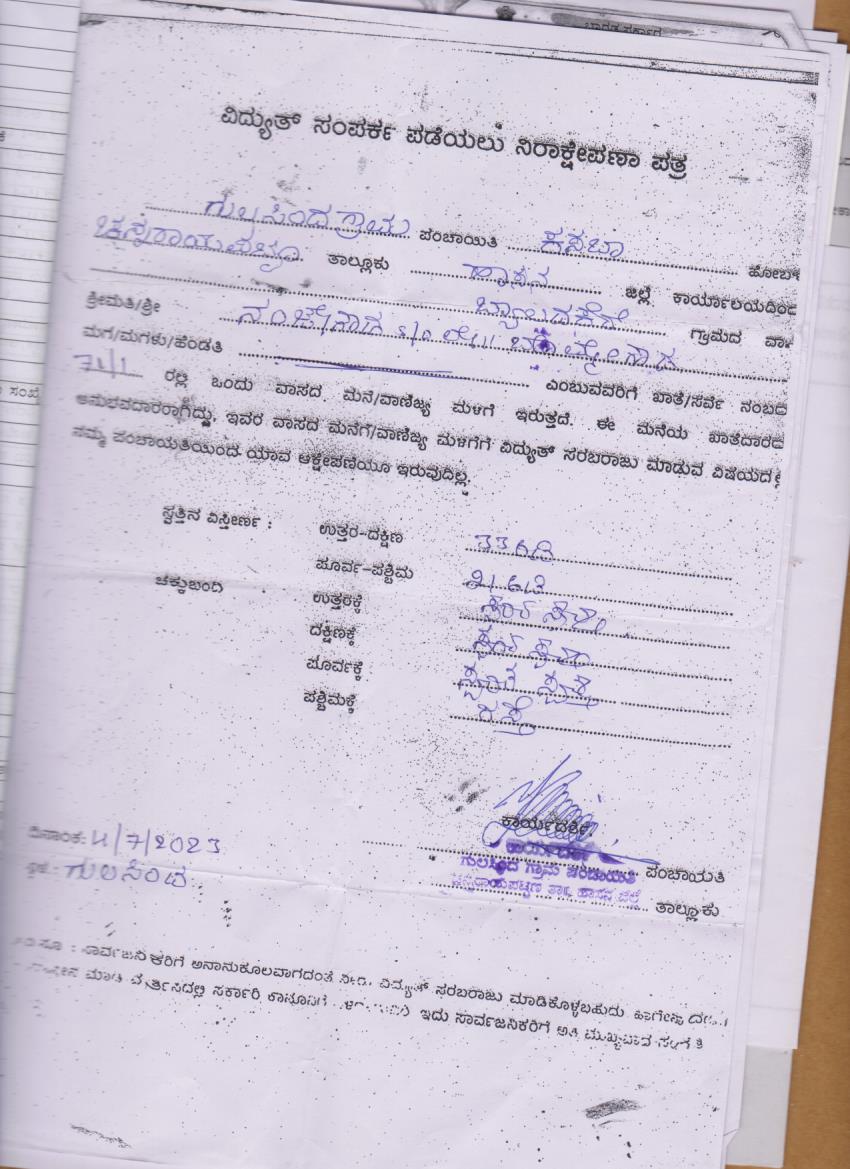 ಭಾರತ ಸರ್ಕಾರ
ವಿದ್ಯುತ್ ಸಂಪರ್ಕ ಪಡೆಯಲು ನಿರಾಕ್ಷೇಪಣಾ ಪತ್ರ
ಗುಲಸಿಂದ ಗ್ರಾಮ ಪಂಚಾಯಿತಿ ಕಸಬಾ ಹೋಬಳಿ
ಚನ್ನರಾಯಪಟ್ಟಣ ತಾಲ್ಲೂಕು ಹಾಸನ ಜಿಲ್ಲೆ ಕಾರ್ಯಾಲಯದಿಂದ
ಬ್ಯಾಲದಕೆರೆ ಗ್ರಾಮದ ವಾಸಿ
ಶ್ರೀಮತಿ/ಶ್ರೀ ನಂಜೇಗೌಡ s/o ಲೇ||
ಮಗ/ಮಗಳು/ಹೆಂಡತಿ ಎಂಬುವವರಿಗೆ ಖಾತೆ/ಸರ್ವೆ ನಂಬರ
71/1 ರಲ್ಲಿ ಒಂದು ವಾಸದ ಮನೆ/ವಾಣಿಜ್ಯ ಮಳಿಗೆ ಇರುತ್ತದೆ. ಈ ಮನೆಯ ಖಾತೆದಾರರ
ಅನುಭವದಾರರಾಗಿದ್ದು, ಇವರ ವಾಸದ ಮನೆಗೆ/ವಾಣಿಜ್ಯ ಮಳಿಗೆಗೆ ವಿದ್ಯುತ್ ಸರಬರಾಜು ಮಾಡುವ ವಿಷಯದಲ್ಲಿ
ನಮ್ಮ ಪಂಚಾಯತಿಯಿಂದ ಯಾವ ಆಕ್ಷೇಪಣೆಯೂ ಇರುವುದಿಲ್ಲ.
ಸ್ವತ್ತಿನ ವಿಸ್ತೀರ್ಣ : ಉತ್ತರ-ದಕ್ಷಿಣ 33 ಅಡಿ
ಪೂರ್ವ-ಪಶ್ಚಿಮ 21 ಅಡಿ
ಚಕ್ಕುಬಂದಿ ಉತ್ತರಕ್ಕೆ
ದಕ್ಷಿಣಕ್ಕೆ
ಪೂರ್ವಕ್ಕೆ ಸ್ವಂತ ಸ್ವತ್ತು
ಪಶ್ಚಿಮಕ್ಕೆ ರಸ್ತೆ
ಕಾರ್ಯದರ್ಶಿ,
ದಿನಾಂಕ: 11/7/2023
ಕಾರ್ಯದರ್ಶಿ
ಪಂಚಾಯತಿ
ಗುಲಸಿಂದ ಗ್ರಾಮ ಪಂಚಾಯಿತಿ
ಸ್ಥಳ: ಗುಲಸಿಂದ
ಚನ್ನರಾಯಪಟ್ಟಣ ತಾ|| ಹಾಸನ ಜಿಲ್ಲೆ
ತಾಲ್ಲೂಕು
ಸಾರ್ವಜನಿಕರಿಗೆ ಅನಾನುಕೂಲವಾಗದಂತೆ ವಿದ್ಯುತ್ ಸರಬರಾಜು ಮಾಡಿಕೊಳ್ಳಬಹುದು.
ಮಾಡಿ ಸರ್ಕಾರಿ ಇದು ಸಾರ್ವಜನಿಕರಿಗೆ ಅತಿ ಮುಖ್ಯವಾದ ಸಂಗತಿ